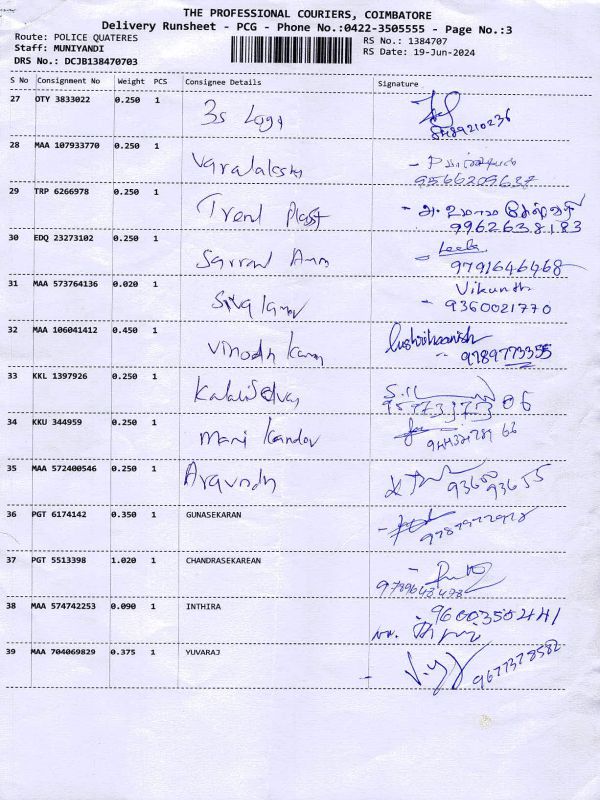 THE PROFESSIONAL COURIERS, COIMBATORE
Delivery Runsheet - PCG - Phone No.:0422-3505555 - Page No.:3
Route: POLICE QUATERES RS No.: 1384707
Staff: MUNIYANDI RS Date: 19-Jun-2024
DRS No.: DCJB138470703
S No Consignment No Weight PCS Consignee Details Signature
27 OTY 3833022 0.250 1 3s Logi
28 MAA 107933770 0.250 1 Varalakshmi
9566209637
29 TRP 6266978 0.250 1 Trend Plast
9962638183
30 EDQ 23273102 0.250 1 Leela
9791646468
31 MAA 573764136 0.020 1 Siva Kumar
9360021770
32 MAA 106041412 0.450 1 Vinodh Kumar
9789773355
33 KKL 1397926 0.250 1 Kalaiselvan
34 KKU 344959 0.250 1 Mani Kandan
35 MAA 572400546 0.250 1 Aravindh 93600 93655
36 PGT 6174142 0.350 1 GUNASEKARAN
37 PGT 5513398 1.020 1 CHANDRASEKAREAN
9789643498
38 MAA 574742253 0.090 1 INTHIRA 9600350441
39 MAA 704069829 0.375 1 YUVARAJ 9677378582